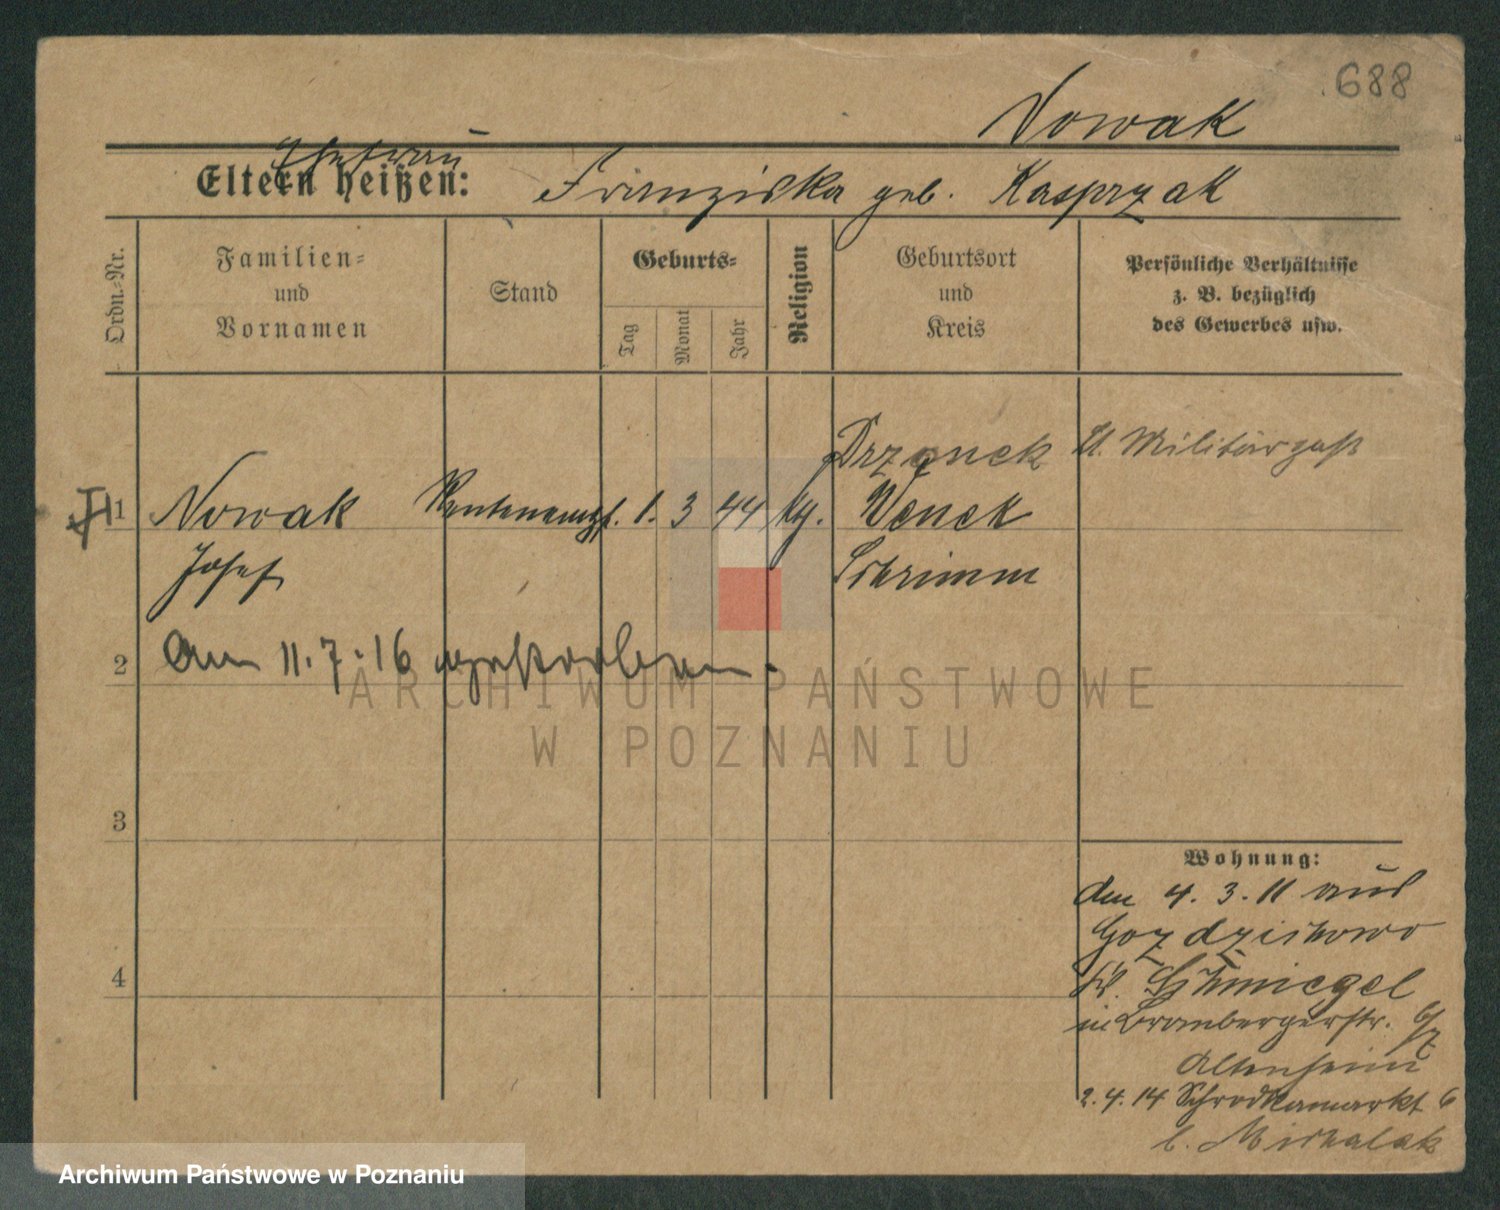 688
Nowak
Ehefrau
Eltern heißen: Franziska geb. Kasprzak
Ordn.-Nr.
Familien-
und
Vornamen
Stand
Geburts-
Tag
Monat
Jahr
Religion
Geburtsort
und
Kreis
Persönliche Verhältnisse
z. B. bezüglich
des Gewerbes usw.
Drzonek Lt. Militärpaß
1 Nowak Rentenempf. 1. 3 44 kth. Wonek
Josef Schrimm
2 Am 11.7.16 gestorben.
3
4
Wohnung:
Am 4.3.11 aus
Gozdzichowo
Schmiegel
in Brombergerstr.
Altenheim
2.4.14 Schrodkamarkt 6
b. Michalak
ARCHIWUM PAŃSTWOWE
W POZNANIU
Archiwum Państwowe w Poznaniu